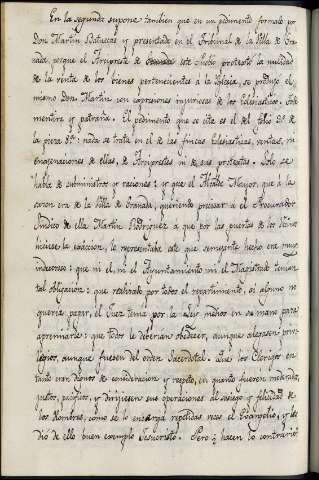 En la segunda supone tambien que en un pedimento formado por
Don Martin Batuecas y presentado en el Tribunal de la Villa de Gra-
nada, porque el Arcipreste de Granada este dicho protestó la nulidad
de la venta de los bienes pertenecientes á la Yglesia, se produjo el
mismo Don Martin con expresiones injuriosas de los Eclesiasticos.
mentira y patraña. El pedimento que se cita es el del folio 28 de
la pieza 8ª: nada se trata en él de las fincas Eclesiasticas, ventas, ni
Enagenaciones de ellas, de Arciprestes ni de sus protestas. Solo se
habla de subministros y raciones; y que el Alcalde Mayor, que á la
sazon era de la Villa de Granada, queriendo precisar á el Procurador
Sindico de ella Martin Rodriguez á que por las puertas de los
hiciese la exaccion, le representaba este que semejante hecho era muy
indecoroso; que ni él, ni el Ayuntamiento ni el Magistrado tenian
tal obligacion: que realizado por todos el repartimiento, si alguno no
queria pagar, el Juez tenia por la Ley medios en su mano para
apremiarle: que todos le deberian obedecer, aunque alegasen privi-
legios, aunque fuesen del orden Sacerdotal. Que los Clerigos en
tanto eran dignos de consideracion y respeto, en quanto fuesen moderados,
justos, pacificos, y dirijiesen sus operaciones al sosiego y felicidad de
los Hombres, como se lo encarga repetidas veces el Evangelio, y les
dió de ello buen exemplo Jesucristo. Pero si hacen lo contrario